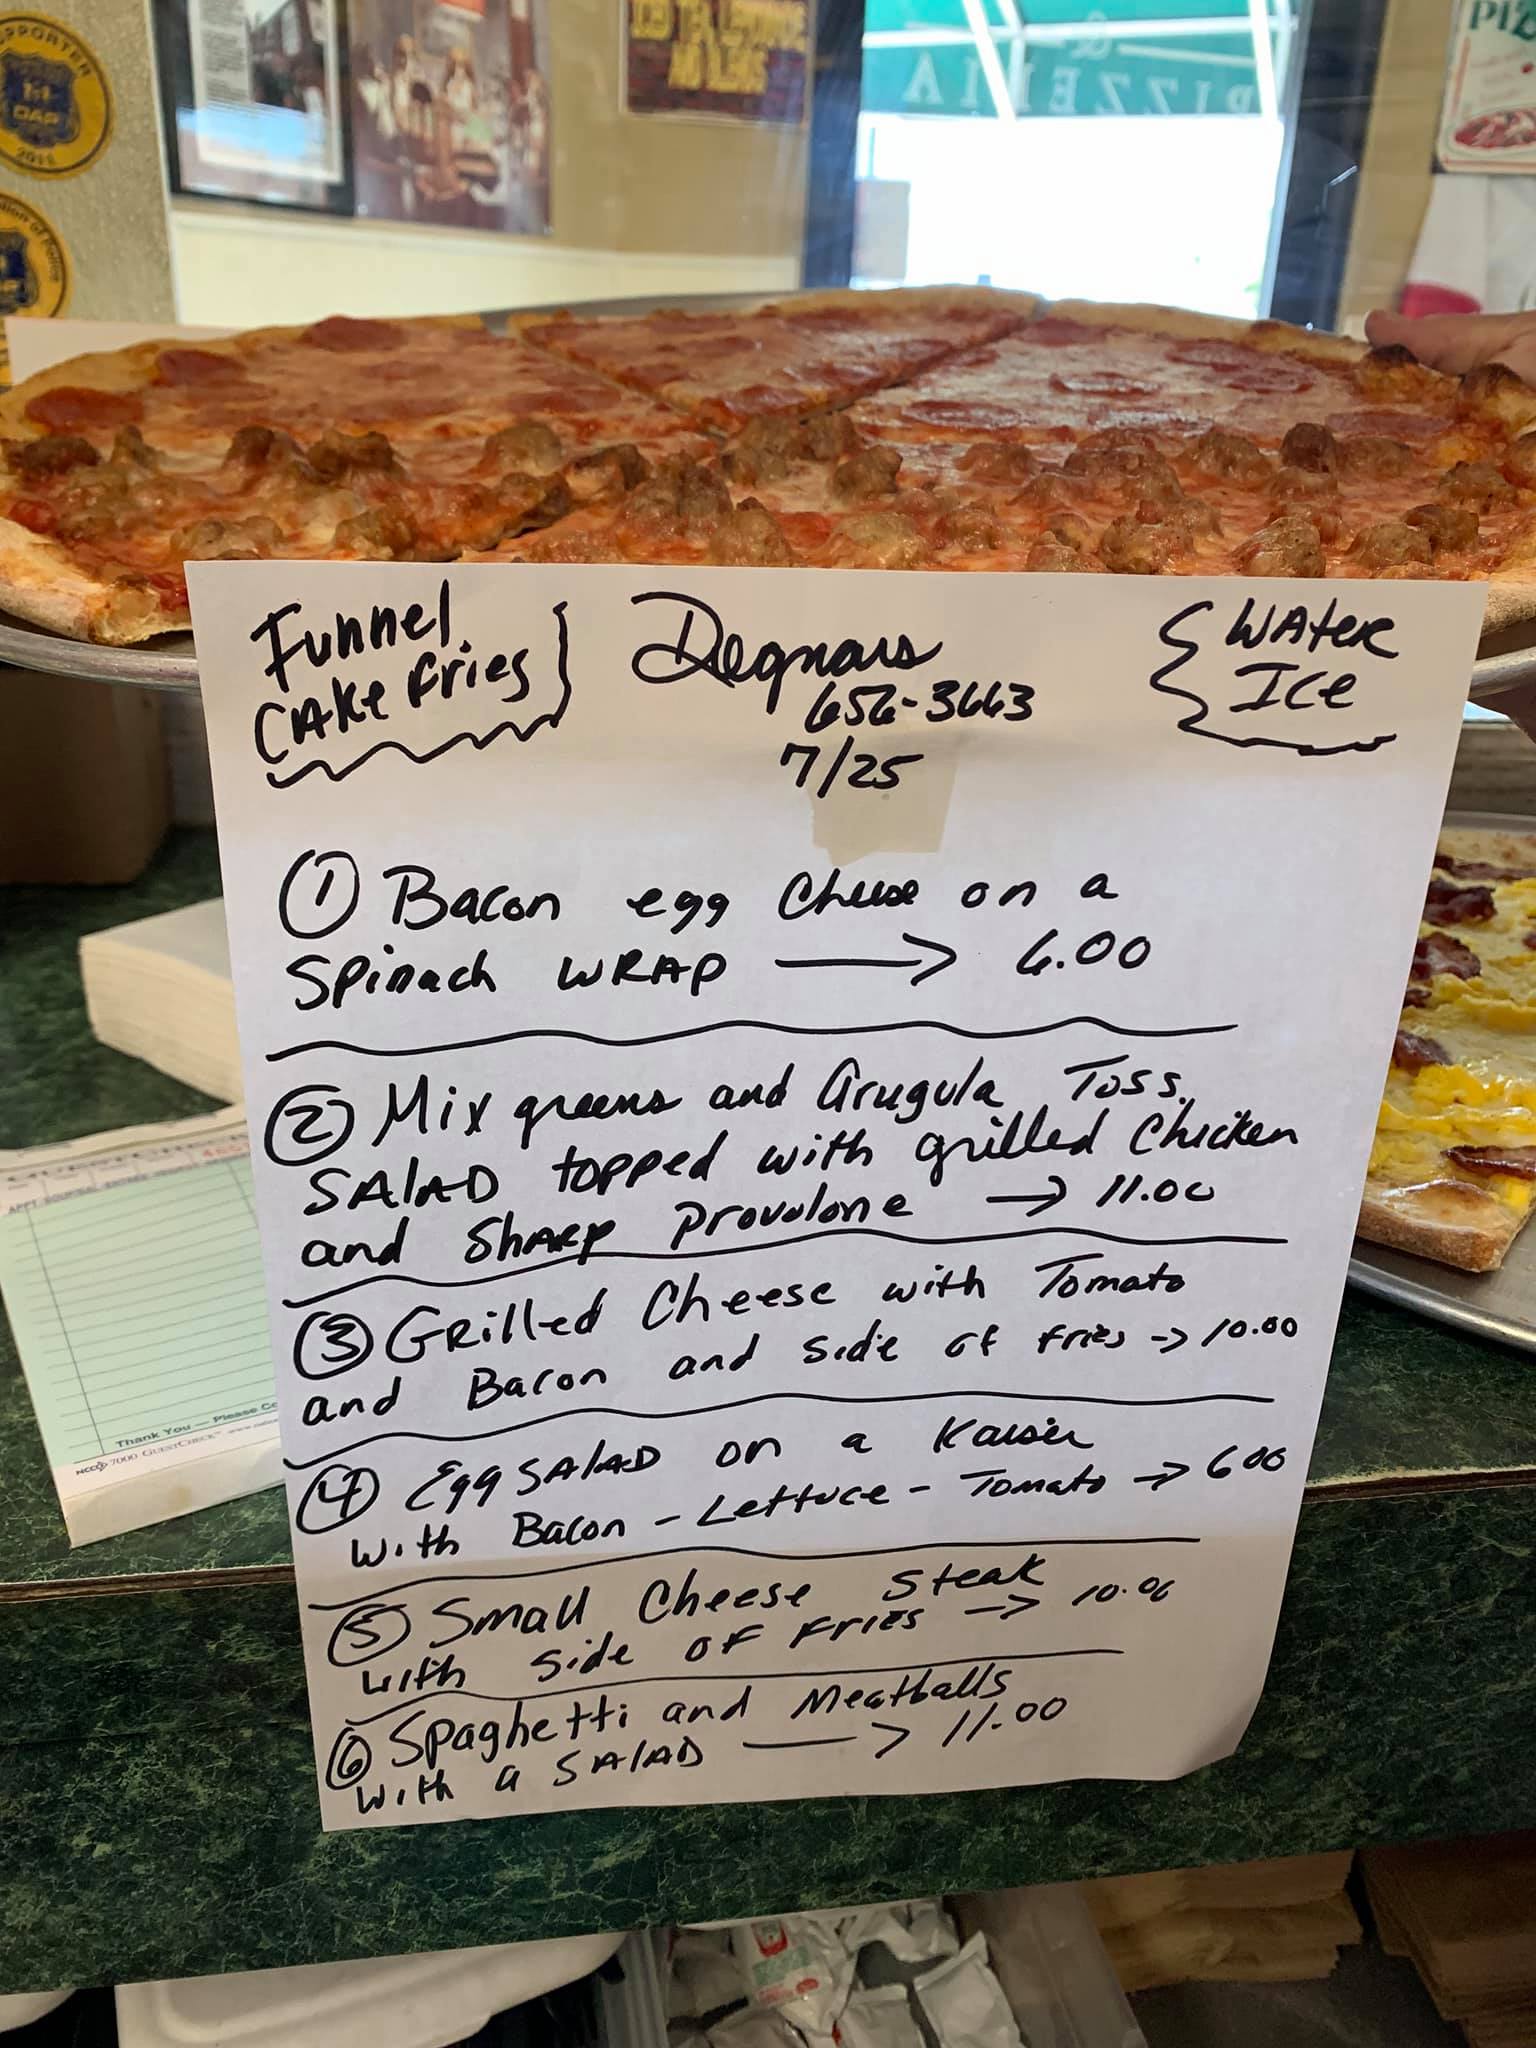 SUPPORTER
OAP
2018
ICED TEA LEMONADE
&
PIZZERIA
PIZ
Funnel
CAKE Fries
Degnars
656-3663
7/25
WATER
ICE
① Bacon egg cheese on a
Spinach WRAP → 6.00
② Mix greens and Arugula Toss
SALAD topped with grilled Chicken
and SHARP Provolone → 11.00
③ GRilled Cheese with Tomato
and Bacon and side of fries → 10.00
④ Egg SALAD on a Kaiser
with Bacon - Lettuce - Tomato → 6.00
⑤ Small Cheese Steak
with side of Fries → 10.00
⑥ Spaghetti and Meatballs
with a SALAD → 11.00
Thank You — Please Co
NCCO 7000 GUESTCHECK™